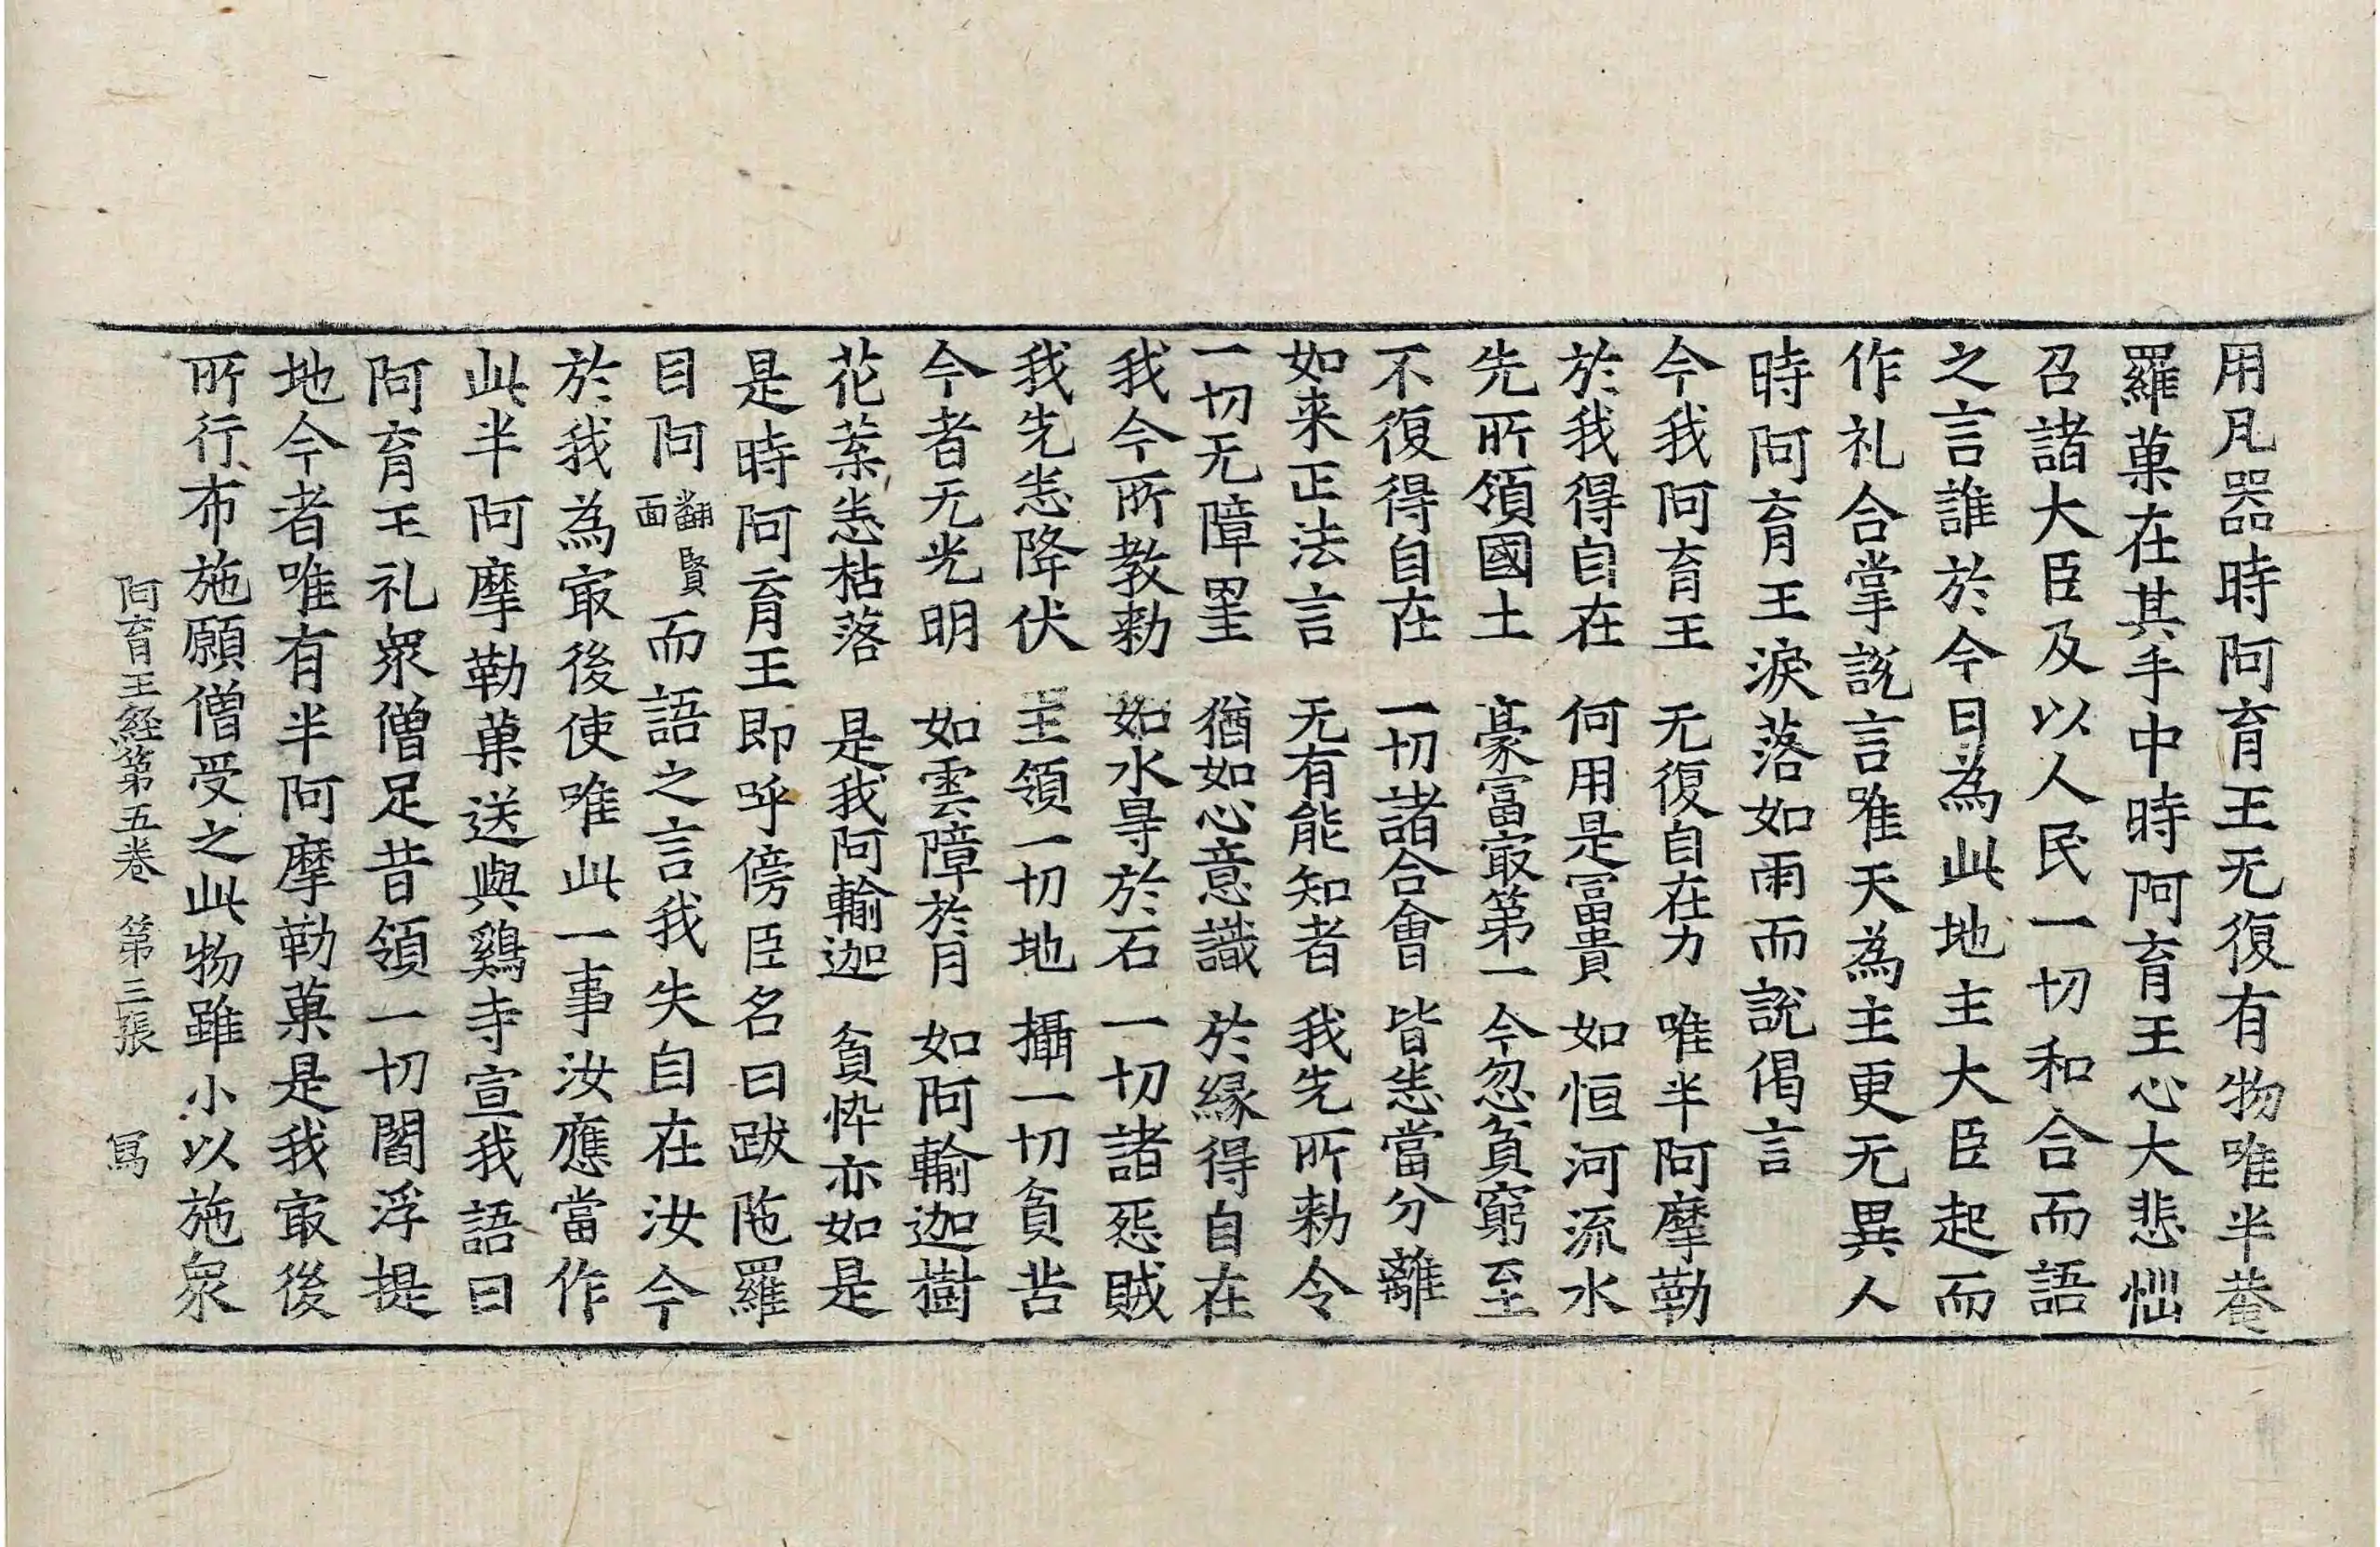 用凡器時阿育王无復有物唯半菴
羅菓在其手中時阿育王心大悲惱
召諸大臣及以人民一切和合而語
之言誰於今日為此地主大臣起而
作礼合掌説言唯天為主更无異人
時阿育王淚落如雨而説偈言
今我阿育王 无復自在力 唯半阿摩勒
於我得自在 何用是冨貴 如恒河流水
先所領國土 豪富㝡第一 今忽貧窮至
不復得自在 一切諸合會 皆悉當分離
如来正法言 无有能知者 我先所勅令
一切无障㝵 猶如心意識 於縁得自在
我今所教勅 如水㝵於石 一切諸惡賊
我先悉降伏 王領一切地 攝一切貧苦
今者无光明 如雲障於月 如阿輸迦樹
花葉悉枯落 是我阿輸迦 貧悴亦如是
是時阿育王即呼傍臣名曰跋陁羅
目阿翻賢面而語之言我失自在汝今
於我為㝡後使唯此一事汝應當作
此半阿摩勒菓送與鷄寺宣我語曰
阿育王礼衆僧足昔領一切閻浮提
地今者唯有半阿摩勒菓是我㝡後
所行布施願僧受之此物雖小以施衆
阿育王経第五卷 第三張 寫